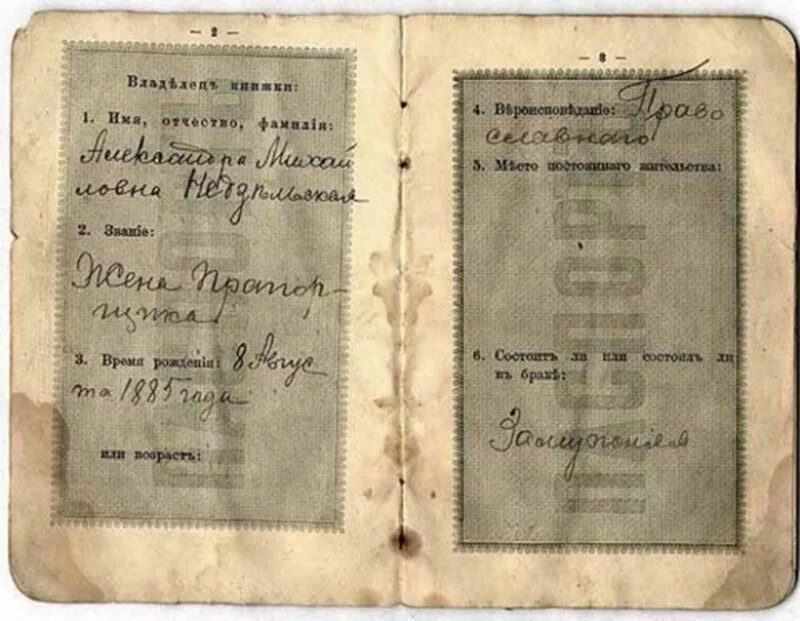 — 2 —
Владѣлецъ книжки:
1. Имя, отчество, фамилія:
Александра Михай
ловна Недѣльская
2. Званіе:
Жена Прапор-
щика
3. Время рожденія: 8 Авгус
та 1885 года
или возрастъ:
— 3 —
4. Вѣроисповѣданіе: Право
славнаго
5. Мѣсто постояннаго жительства:
6. Состоитъ ли или состоялъ ли
въ бракѣ:
Замужняя
ПАСПОРТ